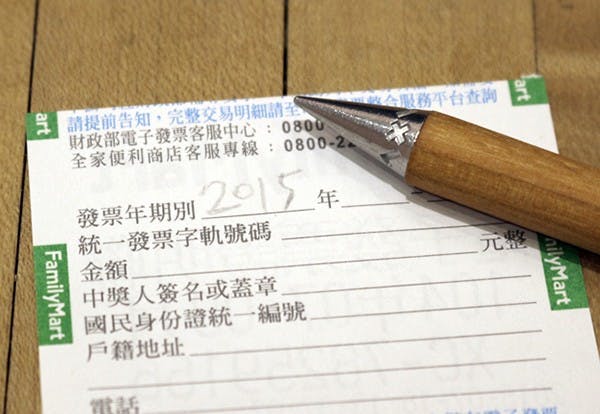 請提前告知，完整交易明細請至 整合服務平台查詢
財政部電子發票客服中心：0800
全家便利商店客服專線：0800-22
發票年期別 2015 年
統一發票字軌號碼
金額 元整
中獎人簽名或蓋章
國民身份證統一編號
戶籍地址
電話
FamilyMart
FamilyMart
Mart